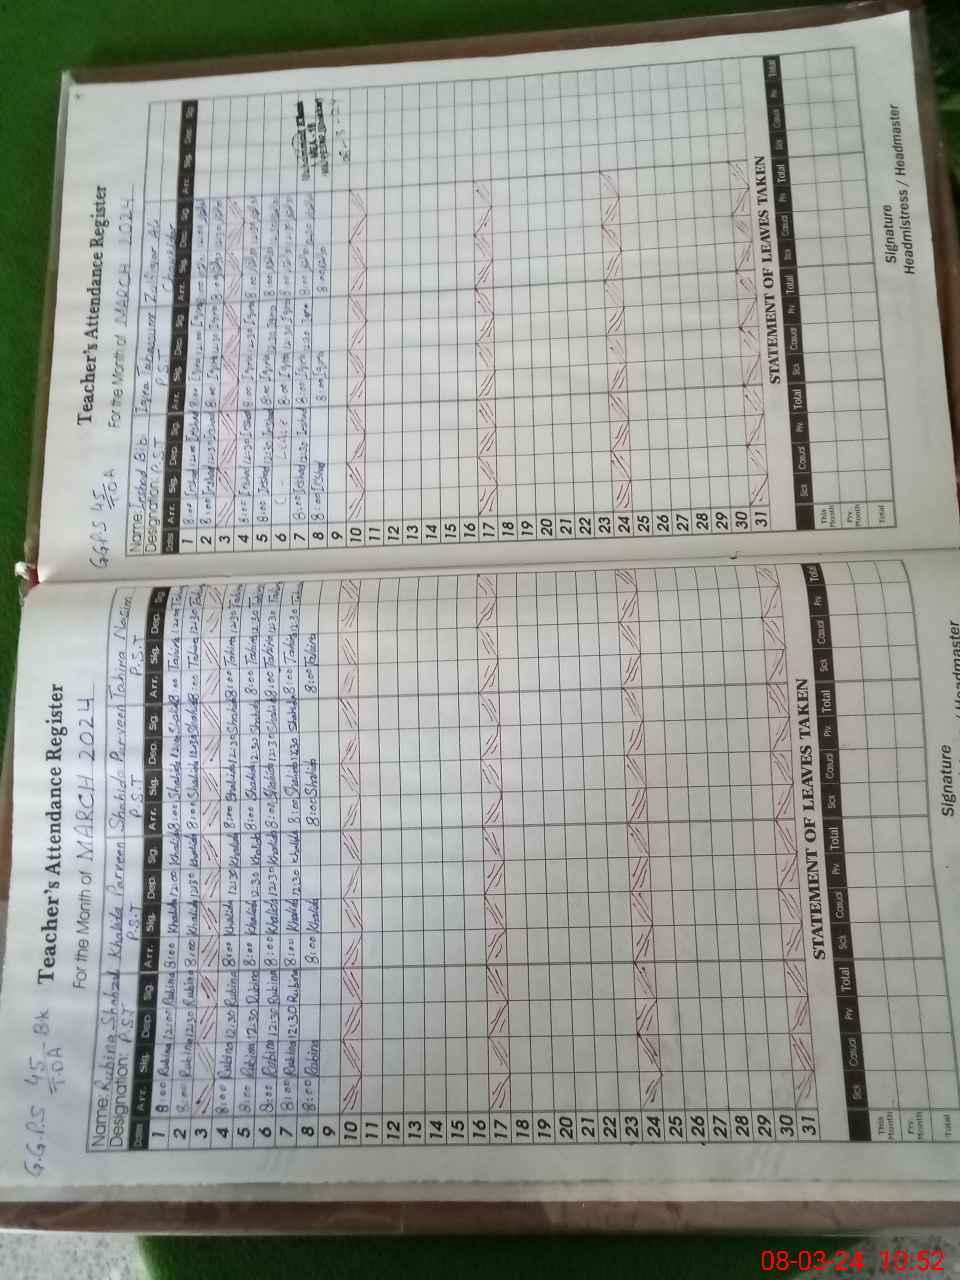 G.G.P.S 45 - 8k
T.D.A
Teacher's Attendance Register
For the Month of MARCH 2024
Name: Rubina Shahzad Khalida Parveen Shahida Parveen Tahira Nasim
Designation: P.S.T P.S.T P.S.T P.S.T
Date Arr. Sig. Dep. Sig. Arr. Sig. Dep. Sig. Arr. Sig. Dep. Sig. Arr. Sig. Dep. Sig.
1 8:00 Rubina 12:00 Rubina 8:00 Khalida 12:00 Khalida 8:00 Shahida 12:00 Shahida 8:00 Tahira 12:00
2 8:00 Rubina 12:30 Rubina 8:00 Khalida 12:30 Khalida 8:00 Shahida 12:30 Shahida 8:00 Tahira 12:30
3
4 8:00 Rubina 12:30 Rubina 8:00 Khalida 12:30 Khalida 8:00 Shahida 12:30 Shahida 8:00 Tahira 12:30
5 8:00 Rubina 12:30 Rubina 8:00 Khalida 12:30 Khalida 8:00 Shahida 12:30 Shahida 8:00 Tahira 12:30
6 8:00 Rubina 12:30 Rubina 8:00 Khalida 12:30 Khalida 8:00 Shahida 12:30 Shahida 8:00 Tahira 12:30
7 8:00 Rubina 12:30 Rubina 8:00 Khalida 12:30 Khalida 8:00 Shahida 12:30 Shahida 8:00 Tahira 12:30
8 8:00 Rubina 8:00 Khalida 8:00 Shahida 8:00 Tahira
9
10
11
12
13
14
15
16
17
18
19
20
21
22
23
24
25
26
27
28
29
30
31
STATEMENT OF LEAVES TAKEN
Sick Casual Prv. Total Sick Casual Prv. Total Sick Casual Prv. Total Sick Casual Prv. Total
This Month
Prv. Month
Total
Signature
/ Headmaster
G.G.P.S 45
T.D.A
Teacher's Attendance Register
For the Month of MARCH 2024
Name: Irshad Bibi Iqra Tabassum Zulfiqar Ali
Designation: P.S.T P.S.T Chowkidar
Date Arr. Sig. Dep. Sig. Arr. Sig. Dep. Sig. Arr. Sig. Dep. Sig. Arr. Sig. Dep. Sig.
1 8:00 Irshad 12:00 Irshad 8:00 Iqra 12:00 Iqra 8:00 12:00
2 8:00 Irshad 12:30 Irshad 8:00 Iqra 12:30 Iqra 8:00 12:30
3
4 8:00 Irshad 12:30 Irshad 8:00 Iqra 12:30 Iqra 8:00 12:30
5 8:00 Irshad 12:30 Irshad 8:00 Iqra 12:30 Iqra 8:00 12:30
6 8:00 Iqra 12:30 Iqra 8:00 12:30
7 8:00 Irshad 12:30 Irshad 8:00 Iqra 12:30 Iqra 8:00 12:30
8 8:00 Irshad 8:00 Iqra 8:00
9
10
11
12
13
14
15
16
17
18
19
20
21
22
23
24
25
26
27
28
29
30
31
STATEMENT OF LEAVES TAKEN
Sick Casual Prv. Total Sick Casual Prv. Total Sick Casual Prv. Total Sick Casual Prv. Total
This Month
Prv. Month
Total
Signature
Headmistress / Headmaster
08-03-24 10:52